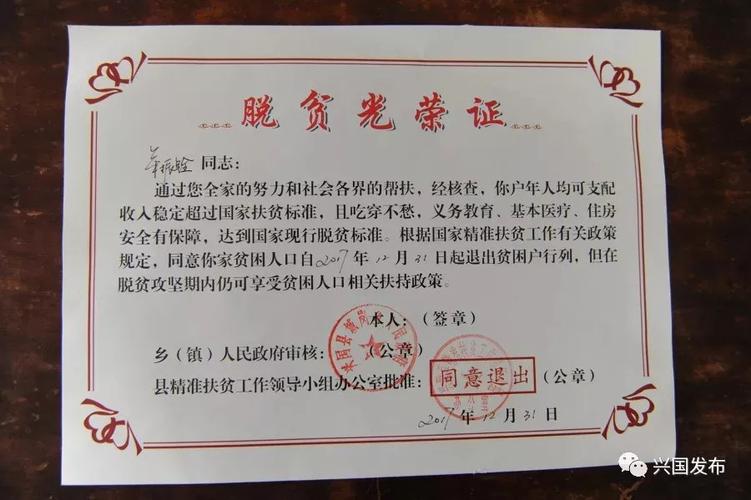 脱贫光荣证
同志：
通过您全家的努力和社会各界的帮扶，经核查，你户年人均可支配
收入稳定超过国家扶贫标准，且吃穿不愁，义务教育、基本医疗、住房
安全有保障，达到国家现行脱贫标准。根据国家精准扶贫工作有关政策
规定，同意你家贫困人口自2017年12月31日起退出贫困户行列，但在
脱贫攻坚期内仍可享受贫困人口相关扶持政策。
本人：（签章）
乡（镇）人民政府审核：（公章）
县精准扶贫工作领导小组办公室批准：同意退出（公章）
2017年12月31日
兴国发布